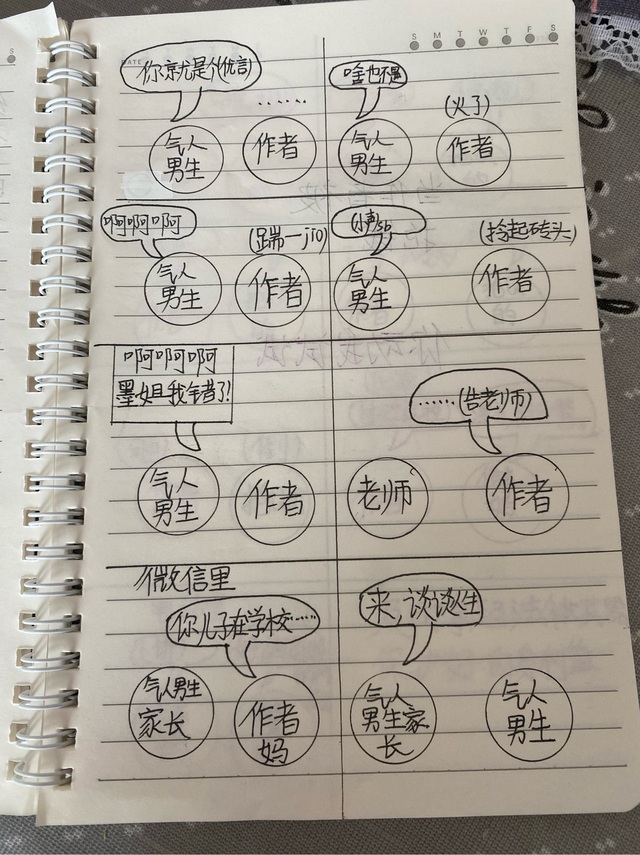 S M T W T F S
DATE
你就是个(优言)
......
气人
男生
作者
啥也不是
(火了)
气人
男生
作者
啊啊啊啊
(踹一jio)
气人
男生
作者
(小声)sb
(拎起砖头)
气人
男生
作者
啊啊啊
墨姐我错了!
气人
男生
作者
……(告老师)
老师
作者
微信里
你儿子在学校……
气人男生
家长
作者
妈
来,谈谈人生
气人
男生家
长
气人
男生